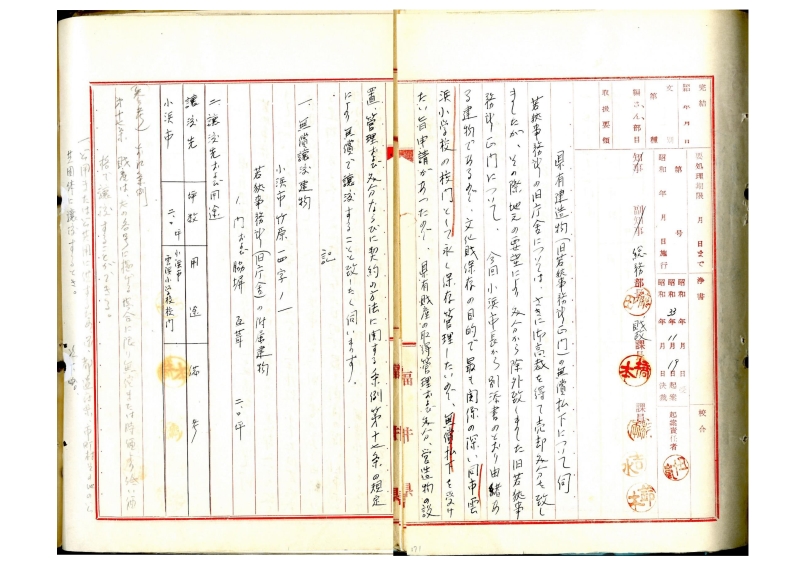 完結
昭和 年 月 日
文 書
第 種
編さん部目
取扱要領
要処理期限 月 日まで
第 号
昭和 年 月 日施行
知事 副知事 総務部長 財政課長 課員
浄書
昭和 年 月 日
昭和33年11月19日起案
昭和 年 月 日決裁
起案責任者
校合
県有建造物(旧若狭事務所正門)の無償払下について伺
若狭事務所の旧庁舎については、さきに御高裁を得て売却処分を致し
ましたが、その際地元の要望により処分から除外致しました旧若狭事
務所正門について、今回小浜市長から別添書のとおり由緒あ
る建物であるので、文化財保存の目的で最も関係の深い同市雲
浜小学校の校門として永く保存管理したいので、無償払下を受け
たい旨申請があったので、県有財産の取得管理および処分、営造物の設
置、管理および処分ならびに契約の方法に関する条例第十七条の規定
により無償で譲渡することと致したく伺います。
記
一、無償譲渡建物
小浜市竹原一四字ノ一
若狭事務所(旧庁舎)の附帯建物
1.門および脇塀 瓦葺 二.〇坪
二、譲渡先および用途
譲渡先 坪数 用途 備考
小浜市 二.〇坪 小浜市雲浜小学校校門
(参考) 本条例
福井県
171